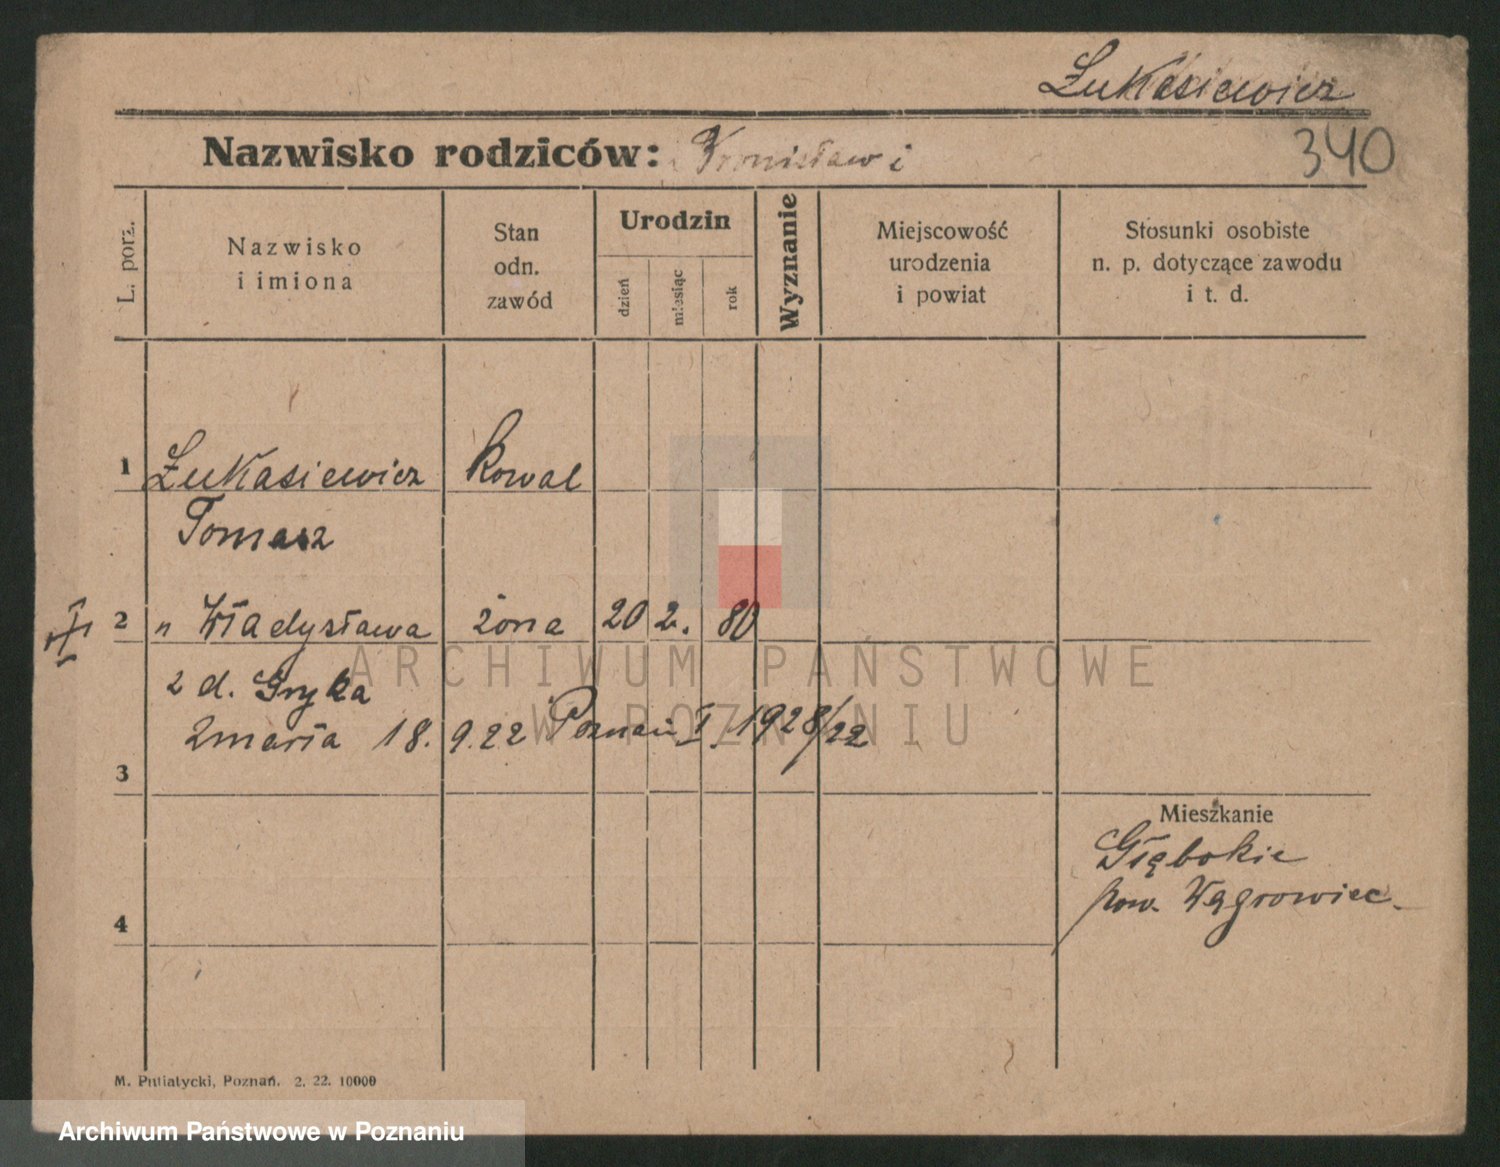 Łukasiewicz
340
Nazwisko rodziców:
L. porz.
Nazwisko
i imiona
Stan
odn.
zawód
Urodzin
dzień
miesiąc
rok
Wyznanie
Miejscowość
urodzenia
i powiat
Stosunki osobiste
n. p. dotyczące zawodu
i t. d.
1 Łukasiewicz kowal
Tomasz
2 " Władysława żona 20 2. 80
z d. Gryka
zmarła 18. 9.22 Poznań I. 1928/22
3
Mieszkanie
Głębokie
pow. Wągrowiec.
4
M. Putiatycki, Poznań. 2. 22. 10000
ARCHIWUM PAŃSTWOWE
W POZNANIU
Archiwum Państwowe w Poznaniu